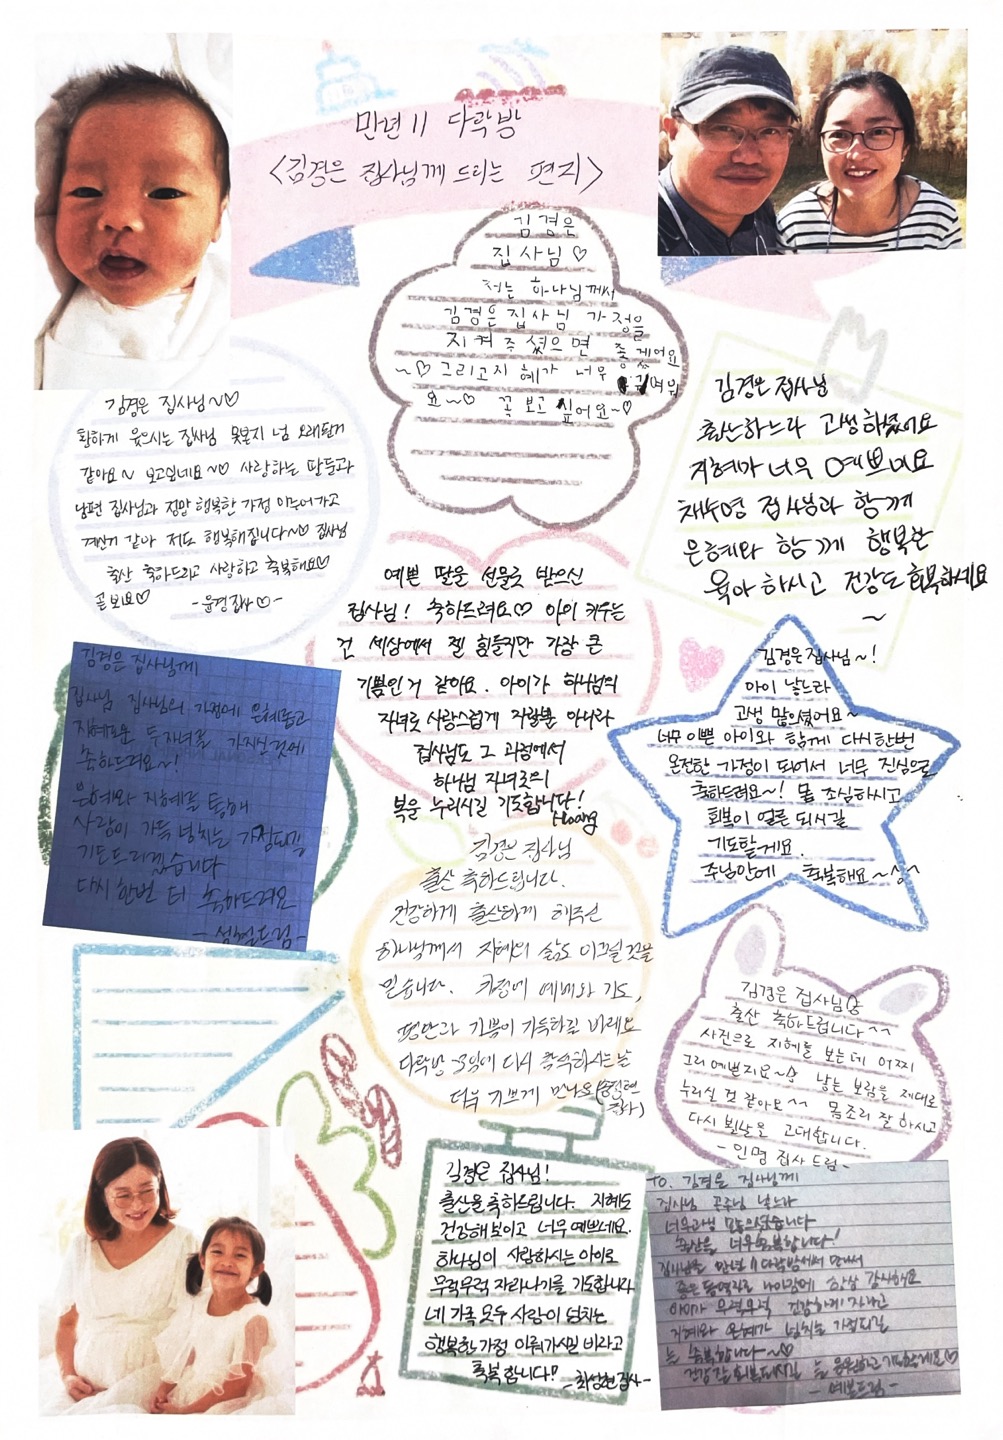 만년 11 다락방
<김경은 집사님께 드리는 편지>
김경은
집사님♡
저는 하나님께서
김경은 집사님 가정을
지켜주셨으면 좋겠어요
~♡ 그리고 지혜가 너무 귀여워
요~♡ 꼭 보고 싶어요~♡
김경은 집사님~♡
환하게 웃으시는 집사님 못본지 넘 오래된거
같아요~ 보고싶네요~♡ 사랑하는 딸둘과
남편 집사님과 정말 행복한 가정 이루어가고
계신거 같아 저도 행복해집니다~♡ 집사님
출산 축하드리고 사랑하고 축복해요♡
곧 봐요♡ -윤경집사♡-
김경은 집사님
출산하느라 고생하셨어요
지혜가 너무 예쁘네요
채수영 집사님과 함께
은혜와 함께 행복한
육아하시고 건강도 회복하세요
~
예쁜 딸을 선물로 받으신
집사님! 축하드려요♡ 아이 키우는
건 세상에서 젤 힘들지만 가장 큰
기쁨인 거 같아요. 아이가 하나님의
자녀로 사랑스럽게 자랄뿐 아니라
집사님도 그 과정에서
하나님 자녀로의
복을 누리시길 기도합니다!
Hoang
김경은 집사님께
집사님 집사님의 가정에 은혜롭고
지혜로운 두자녀를 가지신것에
축하드려요~!
은혜와 지혜를 통해
사랑이 가득 넘치는 가정되길
기도드리겠습니다
다시 한번 더 축하드려요
드림-
김경은 집사님~!
아이 낳느라
고생 많으셨어요~
너무 이쁜 아이와 함께 다시한번
온전한 가정이 되어서 너무 진심으로
축하드려요~! 몸 조심하시고
회복이 얼른 되시길
기도할게요.
주님안에 축복해요~
김경은 집사님
출산 축하드립니다.
건강하게 출산하게 해주신
하나님께서 지혜의 삶도 이끄실것을
믿습니다. 가정에 예배와 기도,
평안과 기쁨이 가득하길 바래요
다락방 모임에 다시 참석하시는날
더욱 기쁘게 만나요
집사)
김경은 집사님
출산 축하드립니다^^
사진으로 지혜를 보는데 어찌
그리 예쁜지요~ 낳는 보람을 제대로
누리실 것 같아요^^ 몸조리 잘 하시고
다시 뵐날을 고대합니다.
-인명 집사 드림-
김경은 집사님!
출산을 축하드립니다. 지혜도
건강해보이고 너무 예쁘네요.
하나님이 사랑하시는 아이로
무럭무럭 자라나기를 기도합니다
네 가족 모두 사랑이 넘치는
행복한 가정 이뤄가시길 바라고
축복합니다!
-최성현집사-
TO. 김경은 집사님께
집사님 공주님 낳느라
너무고생 많으셨습니다
출산을 너무축복합니다!
집사님을 만년11다락방에서 만나서
좋은 동역자로 나아감에 항상 감사해요
아이가 무럭무럭 건강하게 자라고
지혜와 은혜가 넘치는 가정되길
축복합니다~♡
드림-